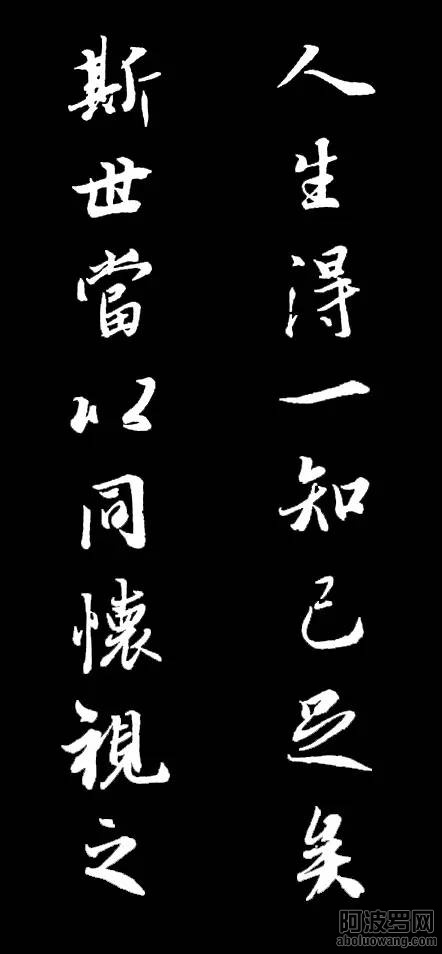 人生得一知己足矣
斯世當以同懷視之
阿波罗网
aboluowang.com